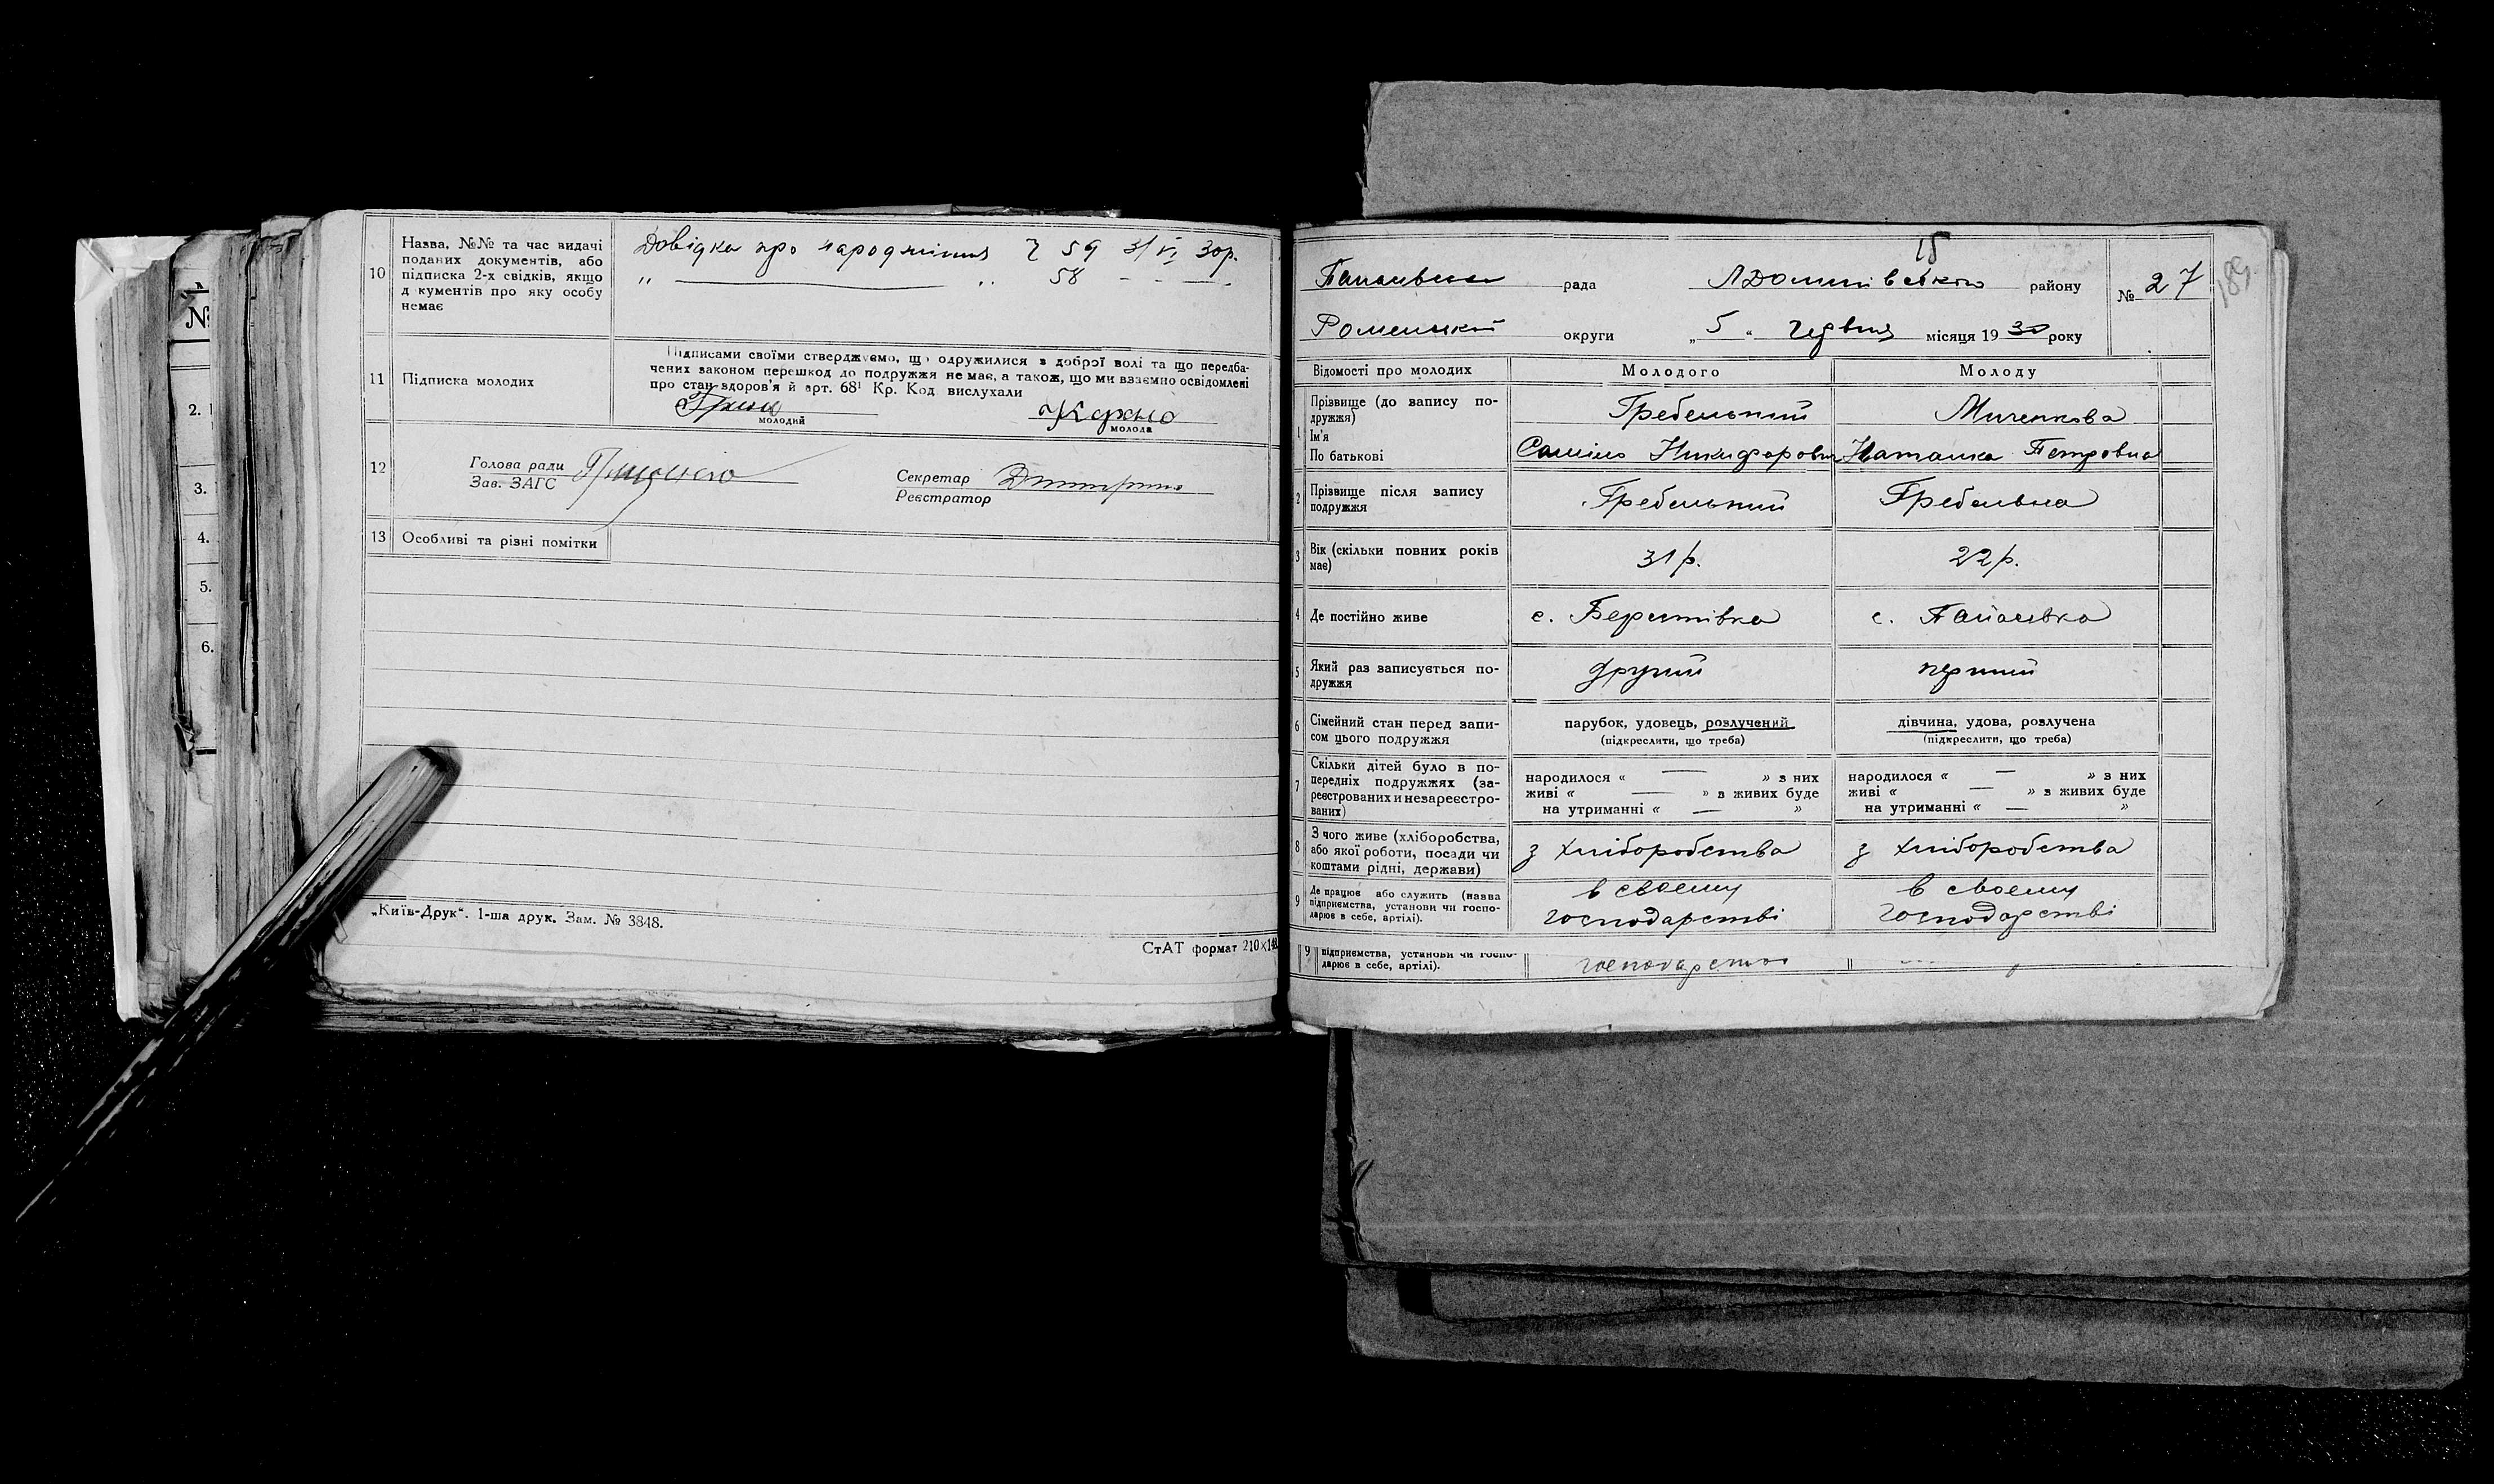 10 Назва, №№ та час видачі
поданих документів, або
підписка 2-х свідків, якщо
д кументів про яку особу
немає
Довідка про народження Ч 59 3/VI 30р.
„ — „ 58 - - — .
11 Підписка молодих
Підписами своїми стверджуємо, що одружилися з доброї волі та що передба-
чених законом перешкод до подружжя немає, а також, що ми взаємно освідомлені
про стан здоров'я й арт. 68¹ Кр. Код вислухали
молодий
молода
12 Голова ради
Зав. ЗАГС
Секретар
Реєстратор
13 Особливі та різні помітки
„Київ-Друк“. 1-ша друк. Зам. № 3848.
СтАТ формат 210×148
№
2.
3.
4.
5.
6.
15
рада району
№ 27
189
Роменської округи „5“ червня місяця 1930 року
Відомості про молодих Молодого Молоду
1 Прізвище (до запису по-
дружжя) Гребельний Миченкова
Ім'я
По батькові Самійло Никифорович Наталка Петровна
2 Прізвище після запису
подружжя Гребельний Гребельна
3 Вік (скільки повних років
має) 31 р. 22 р.
4 Де постійно живе с. Берестівка с. Панасівка
5 Який раз записується по-
дружжя другий перший
6 Сімейний стан перед запи-
сом цього подружжя
парубок, удовець, розлучений
(підкреслити, що треба)
дівчина, удова, розлучена
(підкреслити, що треба)
7 Скільки дітей було в по-
передніх подружжях (за-
реєстрованих и незареєстро-
ваних)
народилося « — » з них
живі « — » з живих буде
на утриманні « — »
народилося « — » з них
живі « — » з живих буде
на утриманні « — »
8 З чого живе (хліборобства,
або якої роботи, посади чи
коштами рідні, держави)
з хліборобства з хліборобства
9 Де працює або служить (назва
підприємства, установи чи госпо-
дарює в себе, артілі).
в своему
господарстві
в своему
господарстві
9 підприємства, установи чи госпо-
дарює в себе, артілі).